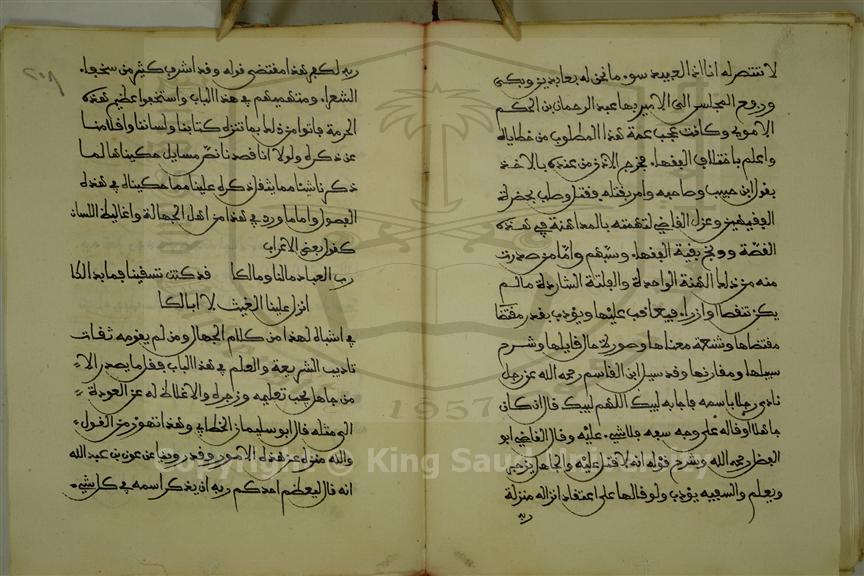 لا ننتصر له انا اذا لعبيد سوء ما نحن له بعابدين وبكى
ورفع المجلس الى الامير بها عبد الرحمان بن الحكم
الاموي وكانت عجب عمة هذا المطلوب من حظاياه
واعلم باختلاف الفقهاء فخرج الاذن من عنده بالاخذ
بقول ابن حبيب وصاحبه وامر بقتله فقتل وصلب بحضرة
الفقيهين وعزل القاضي لتهمته بالمداهنة في هذه
القصة ووبخ بقية الفقهاء وسبهم واما من صدرت
منه من ذلك الهنة الواحدة والفلتة الشاردة ما لم
يكن تنقصا وازراء فيعاقب عليها ويؤدب بقدر مقتضا
مقتضاها وشنعة معناها وصورة حال قايلها وشرح
سببها ومقارنها وقد سيل ابن القاسم رحمه الله عن رجل
نادى رجلا باسمه فاجابه لبيك اللهم لبيك قال ان كان
جاهلا او قاله على وجه سفه فلا شيء عليه وقال القاضي ابو
الفضل رحمه الله وشرح قوله انه لا قتل عليه والجاهل يزجر
ويعلم والسفيه يؤدب ولو قالها على اعتقاد انزاله منزلة
ربه
٢٠٨
ربه لكفر هذا مقتضى قوله وقد اسرف كثير من سخفاء
الشعراء ومتهميهم في هذا الباب واستخفوا عظيم هذه
الحرمة فاتوا من ذلك بما ننزه كتابنا ولساننا واقلامنا
عن ذكره ولولا انا قصدنا نص مسايل حكيناها لما
ذكرنا شيئا مما يثقل ذكره علينا مما حكيناه في هذه
الفصول واما ما ورد في هذا من اهل الجهالة واغاليط اللسان
كقول بعض الاعراب
رب العباد ما لنا وما لكا قد كنت تسقينا فما بدا لكا
انزل علينا الغيث لا ابا لكا
في اشباه لهذا من كلام الجهال ومن لم يقومه ثقاف
تاديب الشريعة والعلم في هذا الباب فقل ما يصدر الا
من جاهل يجب تعليمه وزجره والاغلاظ له عن العودة
الى مثله قال ابو سليمان الخطابي وهذا تهور من القول
والله منزه عن هذه الامور وقد روينا عن عون بن عبد الله
انه قال ليعظم احدكم ربه ان يذكر اسمه في كل شيء
1957
Copyright © King Saud University